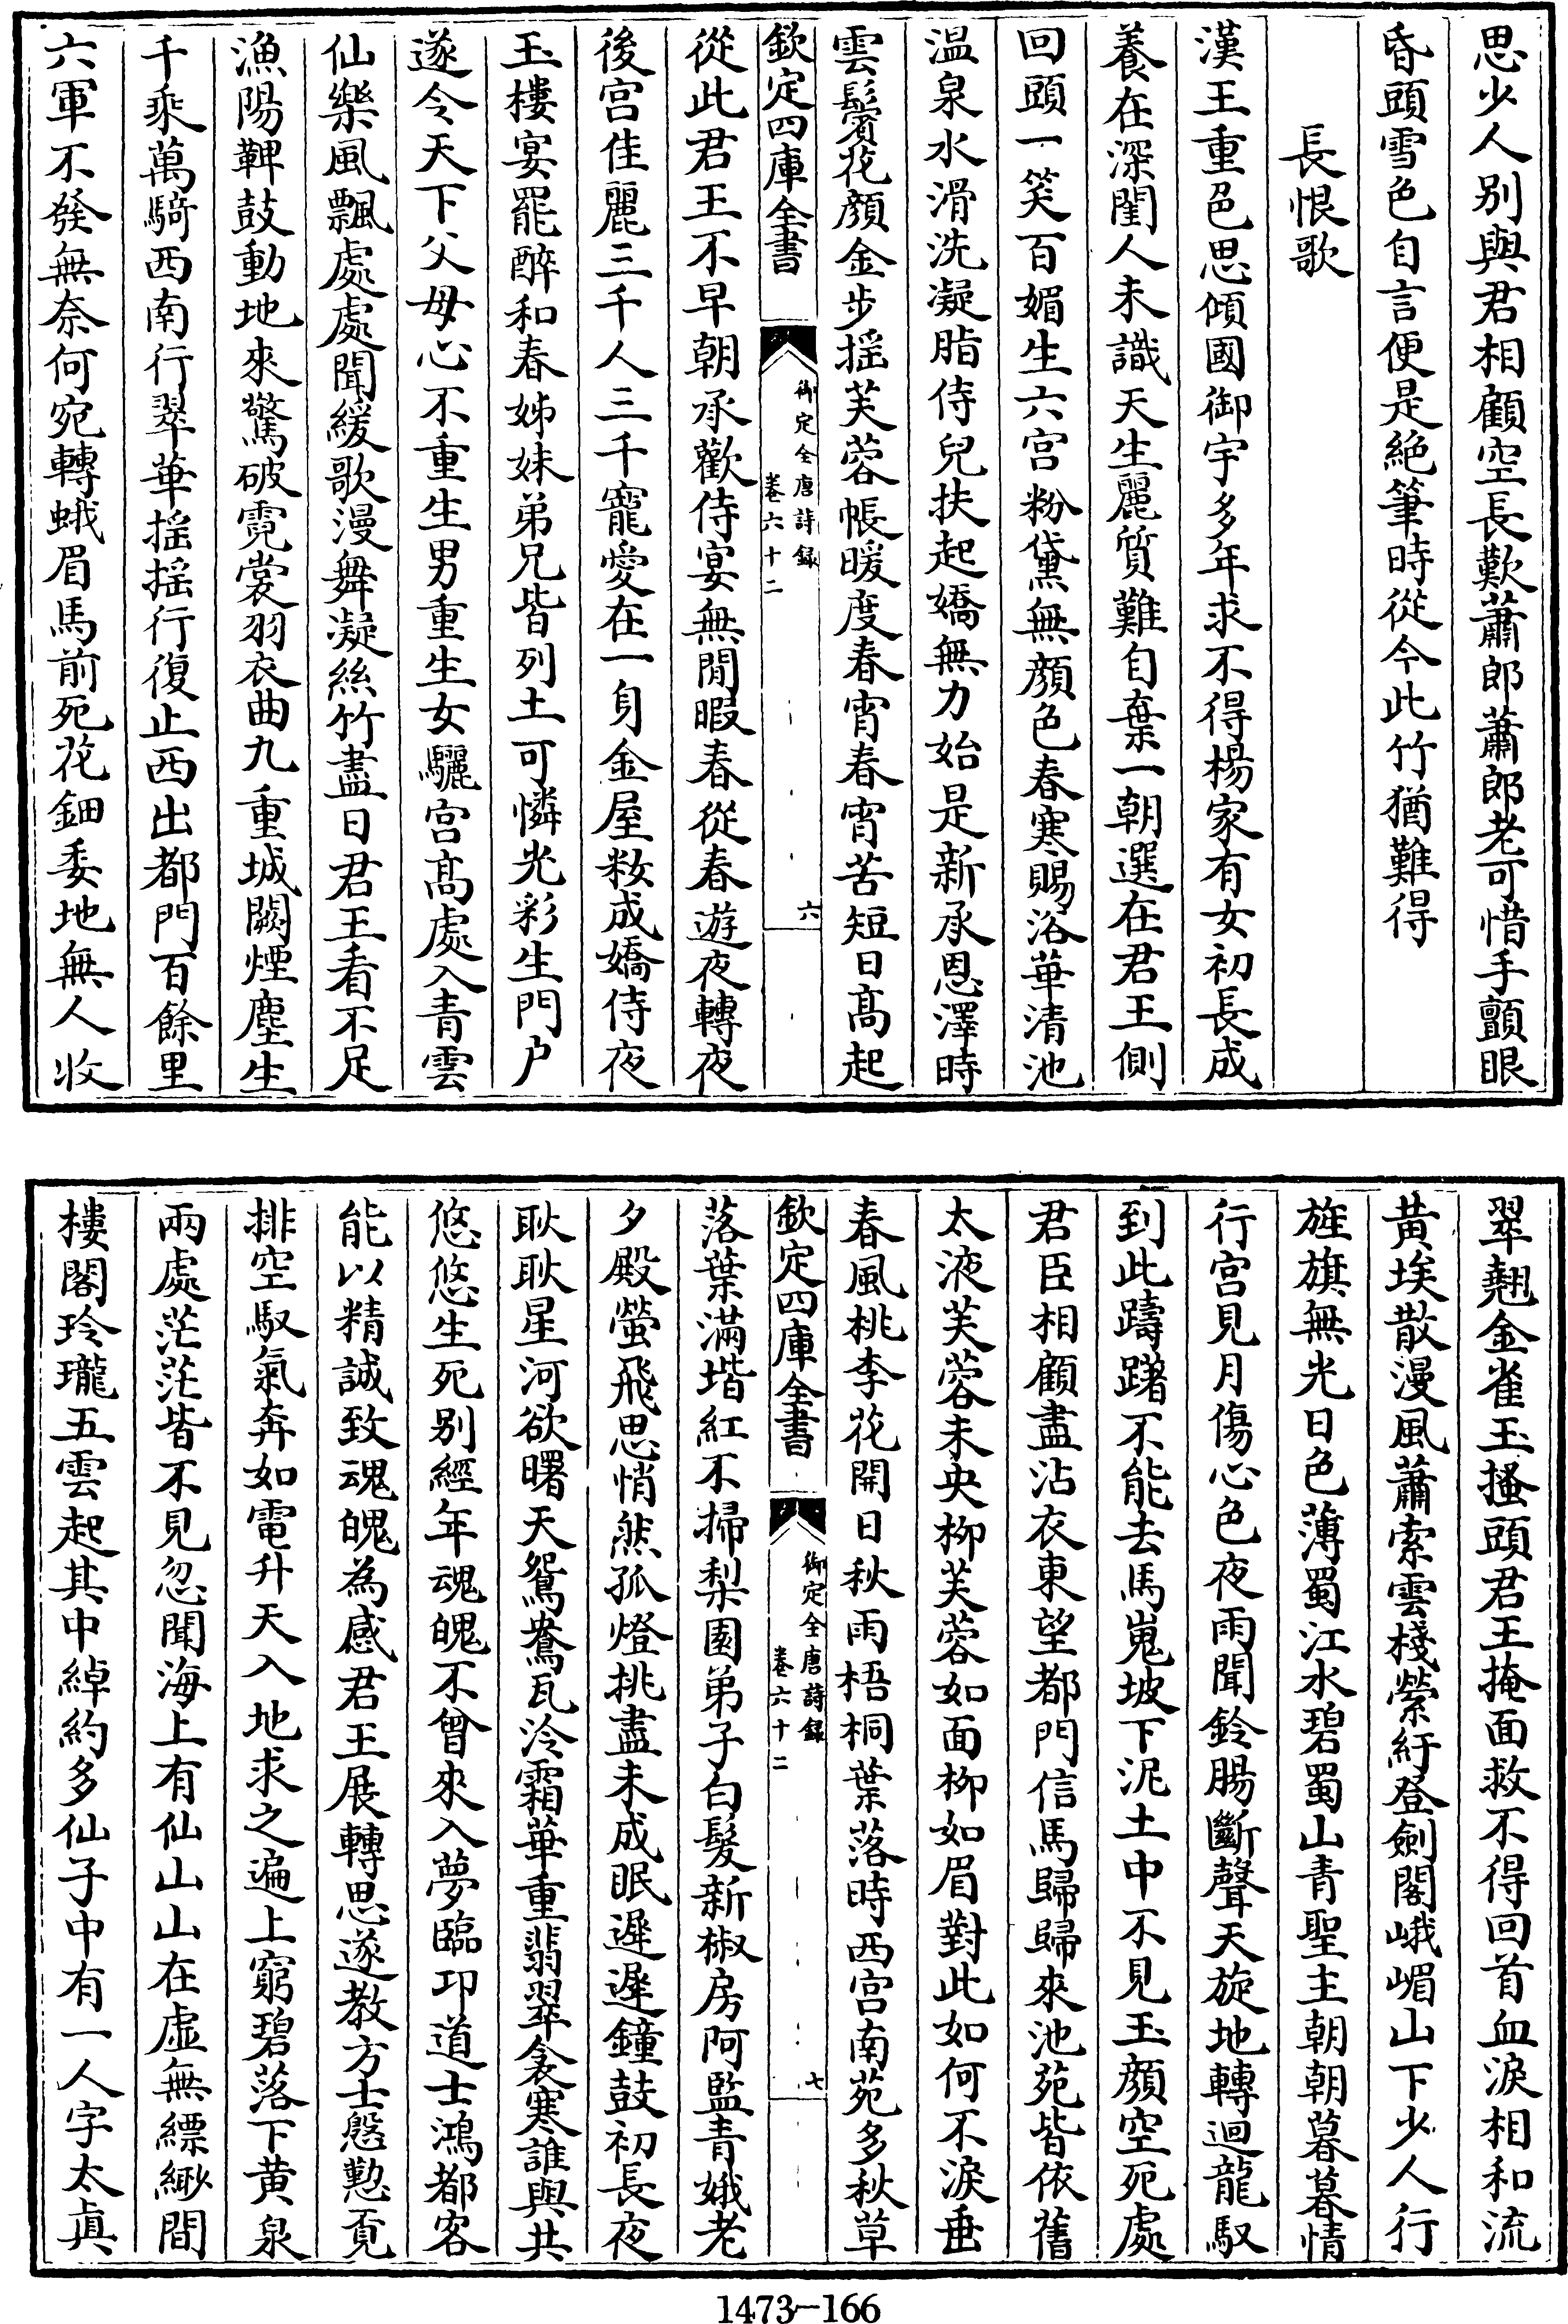 思少人别與君相顧空長歎蕭郎蕭郎老可惜手顫眼
昏頭雪色自言便是絶筆時從今此竹猶難得
長恨歌
漢王重色思傾國御宇多年求不得楊家有女初長成
養在深閨人未識天生麗質難自棄一朝選在君王側
回頭一笑百媚生六宫粉黛無顔色春寒賜浴華清池
温泉水滑洗凝脂侍兒扶起嬌無力始是新承恩澤時
雲鬢花顔金步摇芙蓉帳暖度春宵春宵苦短日髙起
欽定四庫全書
御定全唐詩録
卷六十二
六
從此君王不早朝承歡侍宴無閒暇春從春遊夜轉夜
後宫佳麗三千人三千寵愛在一身金屋粧成嬌侍夜
玉樓宴罷醉和春姊妹弟兄皆列土可憐光彩生門户
遂令天下父母心不重生男重生女驪宫髙處入青雲
仙樂風飄處處聞緩歌漫舞凝絲竹盡日君王看不足
漁陽鞞鼓動地來驚破霓裳羽衣曲九重城闕煙塵生
千乘萬騎西南行翠華摇摇行復止西出都門百餘里
六軍不發無奈何宛轉蛾眉馬前死花鈿委地無人收
翠翹金雀玉搔頭君王掩面救不得回首血淚相和流
黄埃散漫風蕭索雲棧縈紆登劍閣峨嵋山下少人行
旌旗無光日色薄蜀江水碧蜀山青聖主朝朝暮暮情
行宫見月傷心色夜雨聞鈴腸斷聲天旋地轉迴龍馭
到此躊躇不能去馬嵬坡下泥土中不見玉顔空死處
君臣相顧盡沾衣東望都門信馬歸歸來池苑皆依舊
太液芙蓉未央柳芙蓉如面柳如眉對此如何不淚垂
春風桃李花開日秋雨梧桐葉落時西宫南苑多秋草
欽定四庫全書
御定全唐詩録
卷六十二
七
落葉滿堦紅不掃梨園弟子白髮新椒房阿監青娥老
夕殿螢飛思悄然孤燈挑盡未成眠遲遲鐘鼓初長夜
耿耿星河欲曙天鴛鴦瓦冷霜華重翡翠衾寒誰與共
悠悠生死别經年魂魄不曾來入夢臨卭道士鴻都客
能以精誠致魂魄為感君王展轉思遂教方士慇懃覓
排空馭氣奔如電升天入地求之遍上窮碧落下黄泉
兩處茫茫皆不見忽聞海上有仙山山在虛無縹緲間
樓閣玲瓏五雲起其中綽約多仙子中有一人字太真
1473-166